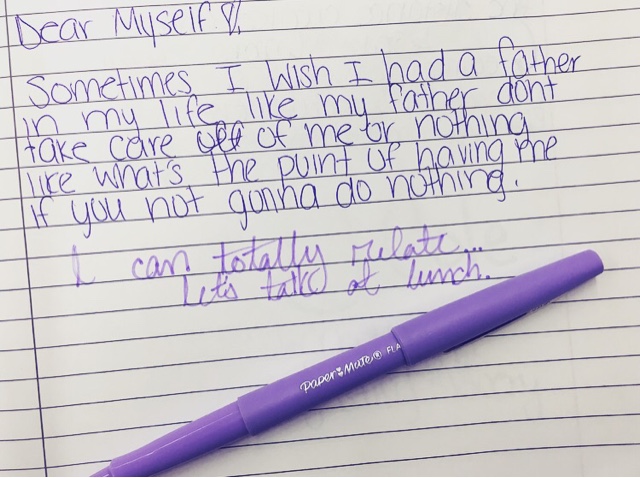 Dear Myself
Sometimes I wish I had a father
in my life like my father dont
take care of me or nothing
like what's the point of having me
if you not gonna do nothing.
I can totally relate...
Let's talk at lunch.
Paper Mate® FLA